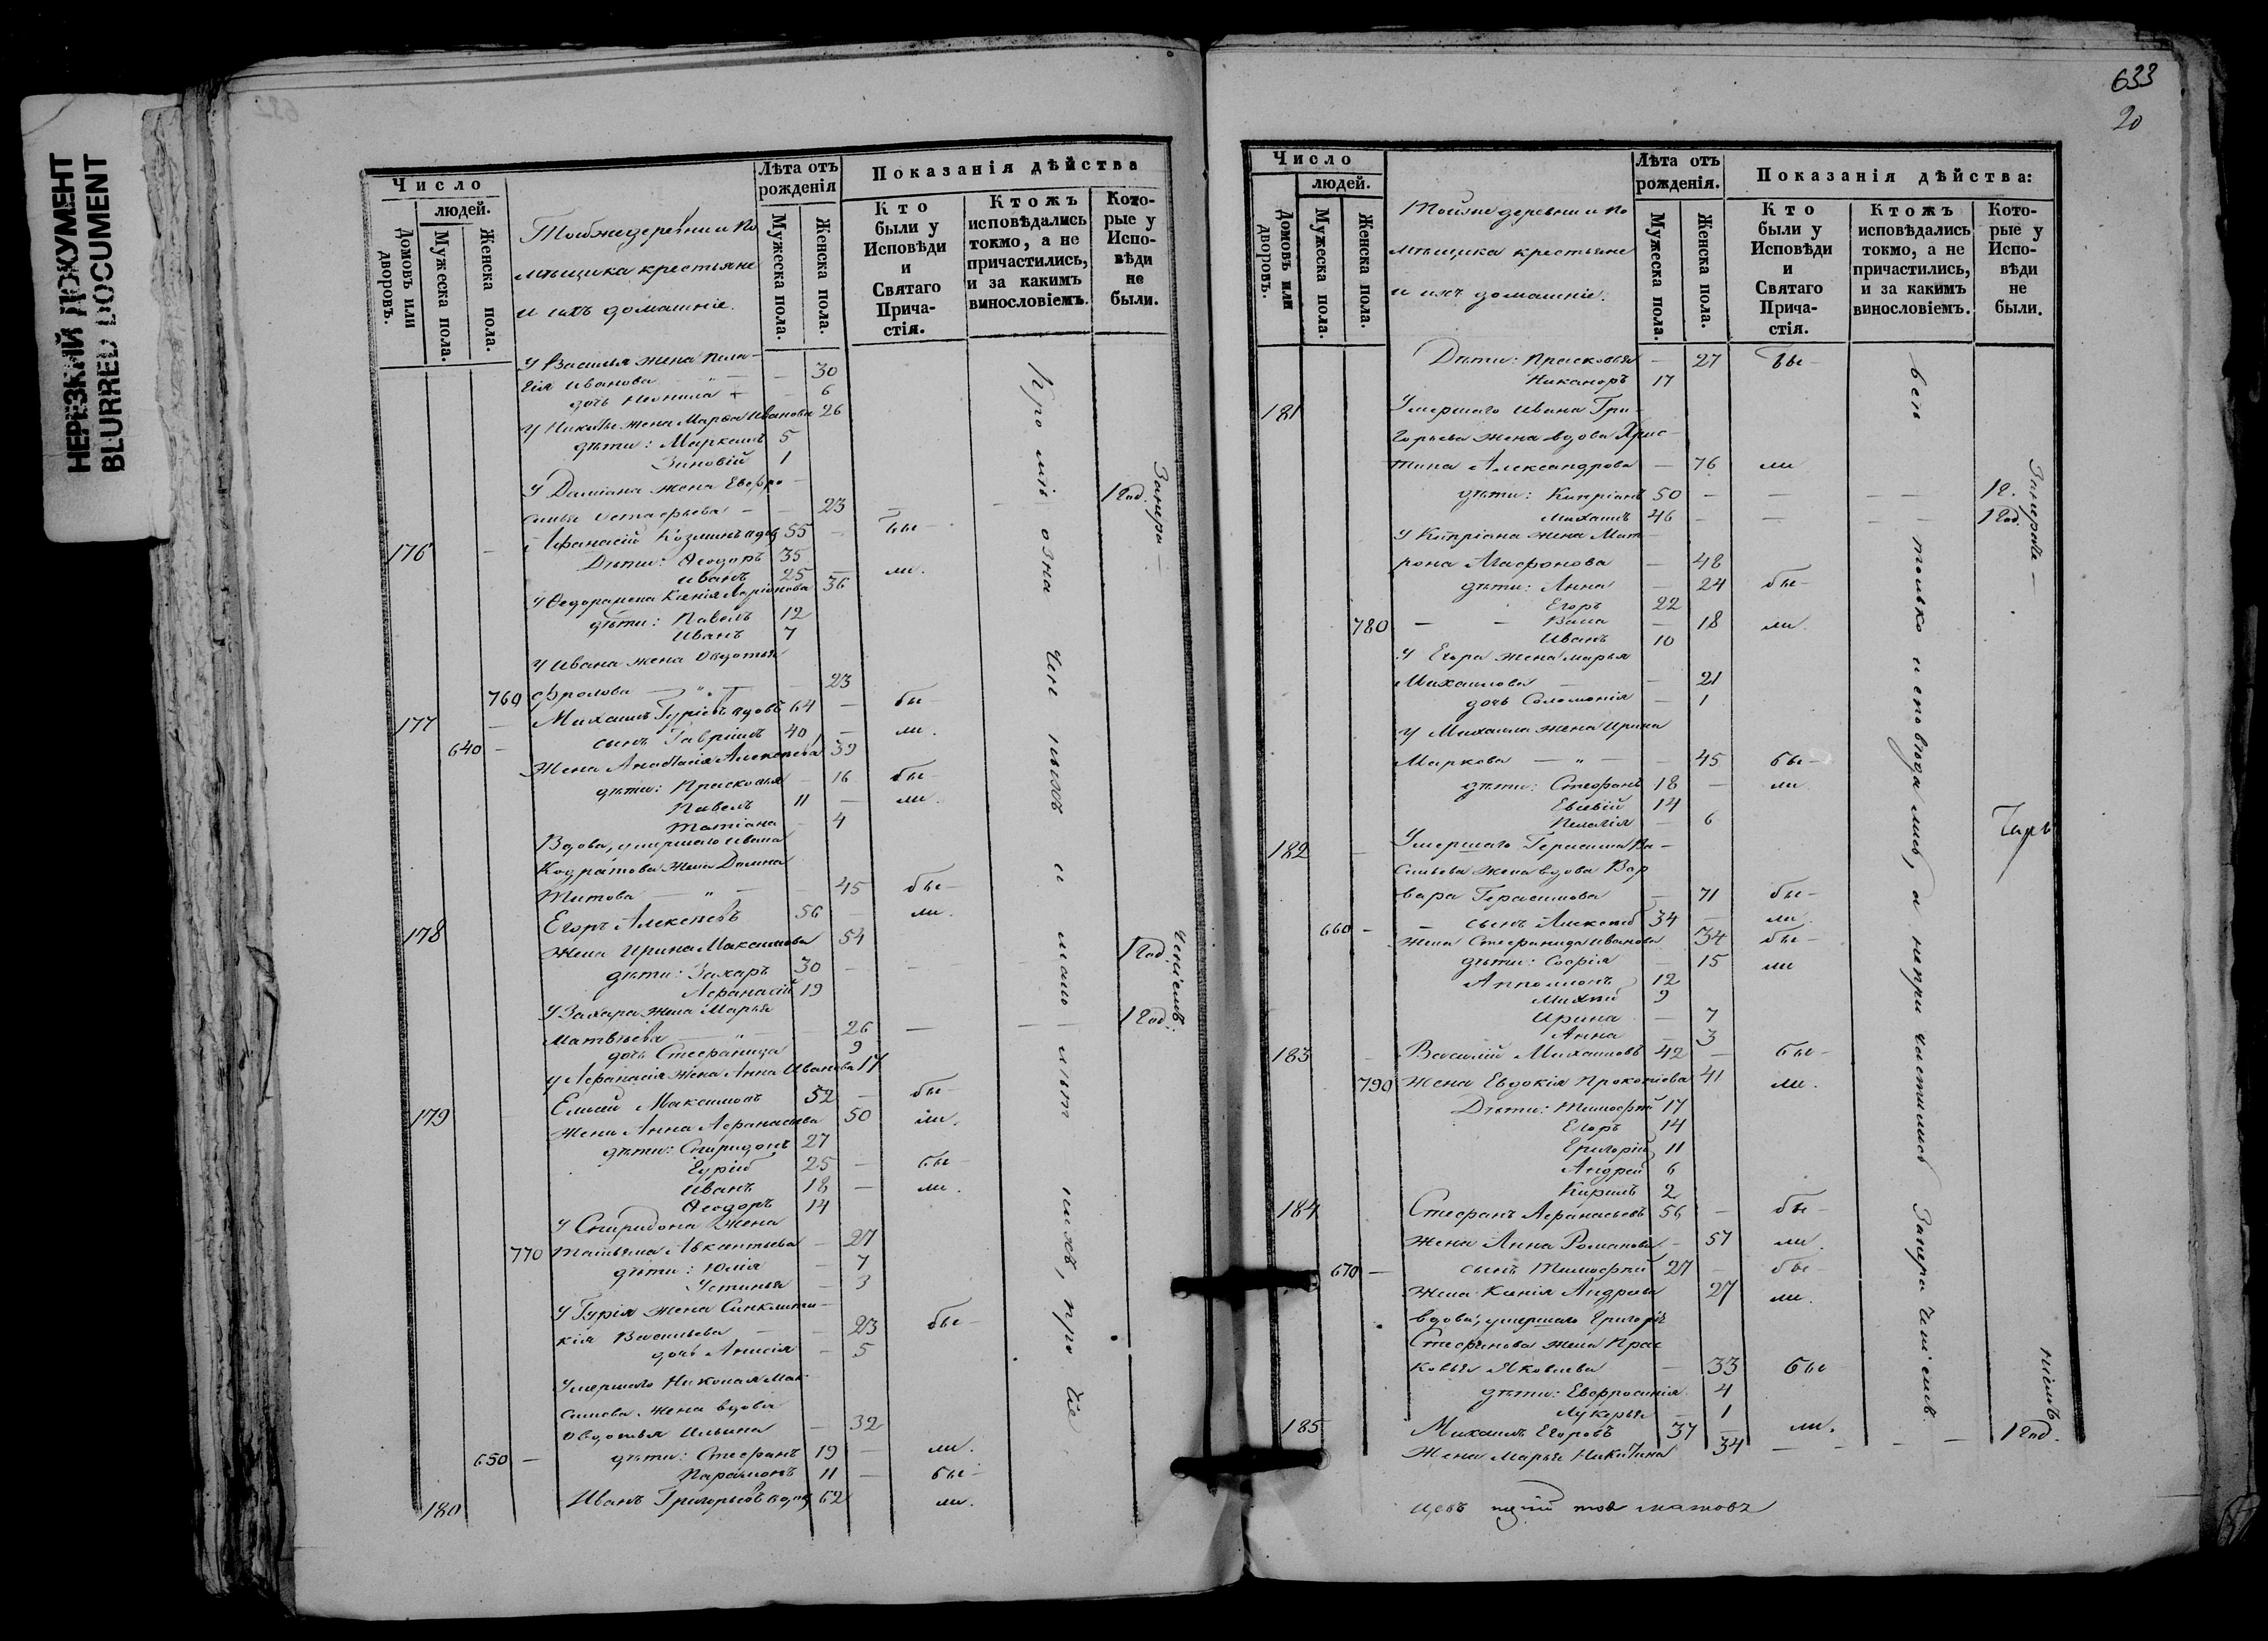 НЕРЕЗКИЙ ДОКУМЕНТ
BLURRED DOCUMENT
Число
людей.
Домовъ или дворовъ.
Мужеска пола.
Женска пола.
Тойже деревни и по
мѣщика крестьяне
и ихъ домашніе.
Лѣта отъ
рожденія
Мужеска пола.
Женска пола.
Показанія дѣйства
Кто
были у
Исповѣди
и
Святаго
Прича-
стія.
Ктожъ
исповѣдались
токмо, а не
причастились,
и за какимъ
винословіемъ.
Кото-
рые у
Испо-
вѣди
не
были.
У Василья жена Пела-
гія Иванова — " — — 30
дочь Неонила — 6
У Никиты жена Марѳа Иванова 26
дѣти: Маркелъ 5
Зиновій 1
У Даміана жена Евфро-
синья Остафьева — — 23 — — 1 год.
176 — Афанасій Козминъ вдов 55 — бы —
Дѣти: Ѳеодоръ 35
Иванъ 25 — ли.
У Федора жена Ксенія Ларіонова 36
дѣти: Павелъ 12
Иванъ 7
У Ивана жена Овдотья
760 Фролова — " — — 23
177 — Михаилъ Гурьевъ вдовъ 64 — бы —
640 — сынъ Гавріилъ 40 — ли.
Жена Анастасія Алексѣева 39
дѣти: Прасковья — 16 бы —
Павелъ 11 — ли.
Татіана — 4
Вдова, умершаго Ивана
Кодратова жена Домна
Титова — " — — 45 бы —
178 Егоръ Алексѣевъ 56 — ли.
Жена Ирина Максимова 54
дѣти: Захаръ 30 — — — 1 год.
Афанасій 19
У Захара жена Марья
Матвѣева — " — — 26 — — 1 год.
дочь Стефанида 9
У Афанасія жена Анна Иванова 17
179 Елисей Максимовъ 52 — бы —
Жена Анна Афанасьева 50 ли.
дѣти: Спиридонъ 27
Гурій 25 — бы —
Иванъ 18 — ли.
Ѳеодоръ 14
У Спиридона жена
770 Татьяна Авксентьева — 27
дѣти: Юлія — 7
Устинья — 3
У Гурія жена Синклити-
кія Васильева — — 23 бы —
дочь Анисія — 5
Умершаго Николая Мак-
симова жена вдова
Овдотья Ильина — 32
650 — дѣти: Стефанъ 19 — ли.
Парамонъ 11 — бы —
180 Иванъ Григорьевъ вдов 62 ли.
Кромѣ означенныхъ и мало лѣтнихъ, прочіе
Занеро-
ченіемъ.
633
20
Число
людей.
Домовъ или дворовъ.
Мужеска пола.
Женска пола.
Тойже деревни и по
мѣщика крестьяне
и ихъ домашніе.
Лѣта отъ
рожденія.
Мужеска пола.
Женска пола.
Показанія дѣйства:
Кто
были у
Исповѣди
и
Святаго
Прича-
стія.
Ктожъ
исповѣдались
токмо, а не
причастились,
и за какимъ
винословіемъ.
Кото-
рые у
Испо-
вѣди
не
были.
Дѣти: Прасковья — 27 бы —
Никаноръ 17
181 Умершаго Ивана Гри-
горьева жена вдова Хрис-
тина Александрова — 76 ли
дѣти: Кипріанъ 50 — — — 1 г.
Михаилъ 46 — — — 1 год.
У Кипріана жена Мат-
рона Агафонова — 48
дѣти: Анна — 24 бы —
Егоръ 22
780 — — Васа — 18 ли.
Иванъ 10
У Егора жена Марья
Михаилова — — 21
дочь Соломонія — 1
У Михаила жена Ирина
Маркова — " — — 45 бы —
дѣти: Стефанъ 18 — ли
Евсевій 14
Пелагія — 6
182 — Умершаго Герасима Ва-
сильева жена вдова Вар
вара Герасимова — 71 бы —
660 — — сынъ Алексѣй 34 — ли.
Жена Стефанида Иванова 34 бы —
дѣти: Софія — 15 ли
Апполлонъ 12
Михей 9
Ирина — 7
Анна — 3
183 — Василій Михаиловъ 42 — бы —
790 Жена Евдокія Прокопіева 41 ли.
Дѣти: Тимофей 17
Егоръ 14
Григорій 11
Андрей 6
Кирилъ 2
184 Стефанъ Афанасьевъ 56 — бы —
Жена Анна Романова — 57 ли.
670 — сынъ Тимофей 27 — бы —
Жена Ксенія Андреева 27 ли.
вдова, умершаго Григорія
Стефанова жена Прас
ковья Яковлева — 33 бы
дѣти: Евфросинія 4
Лукерья — 1
185 Михаилъ Егоровъ 37 — ли.
Жена Марья Никитина 34 — — — — 1 год.
всѣ только исповѣдались, а непричастились
Занеро-
ніемъ